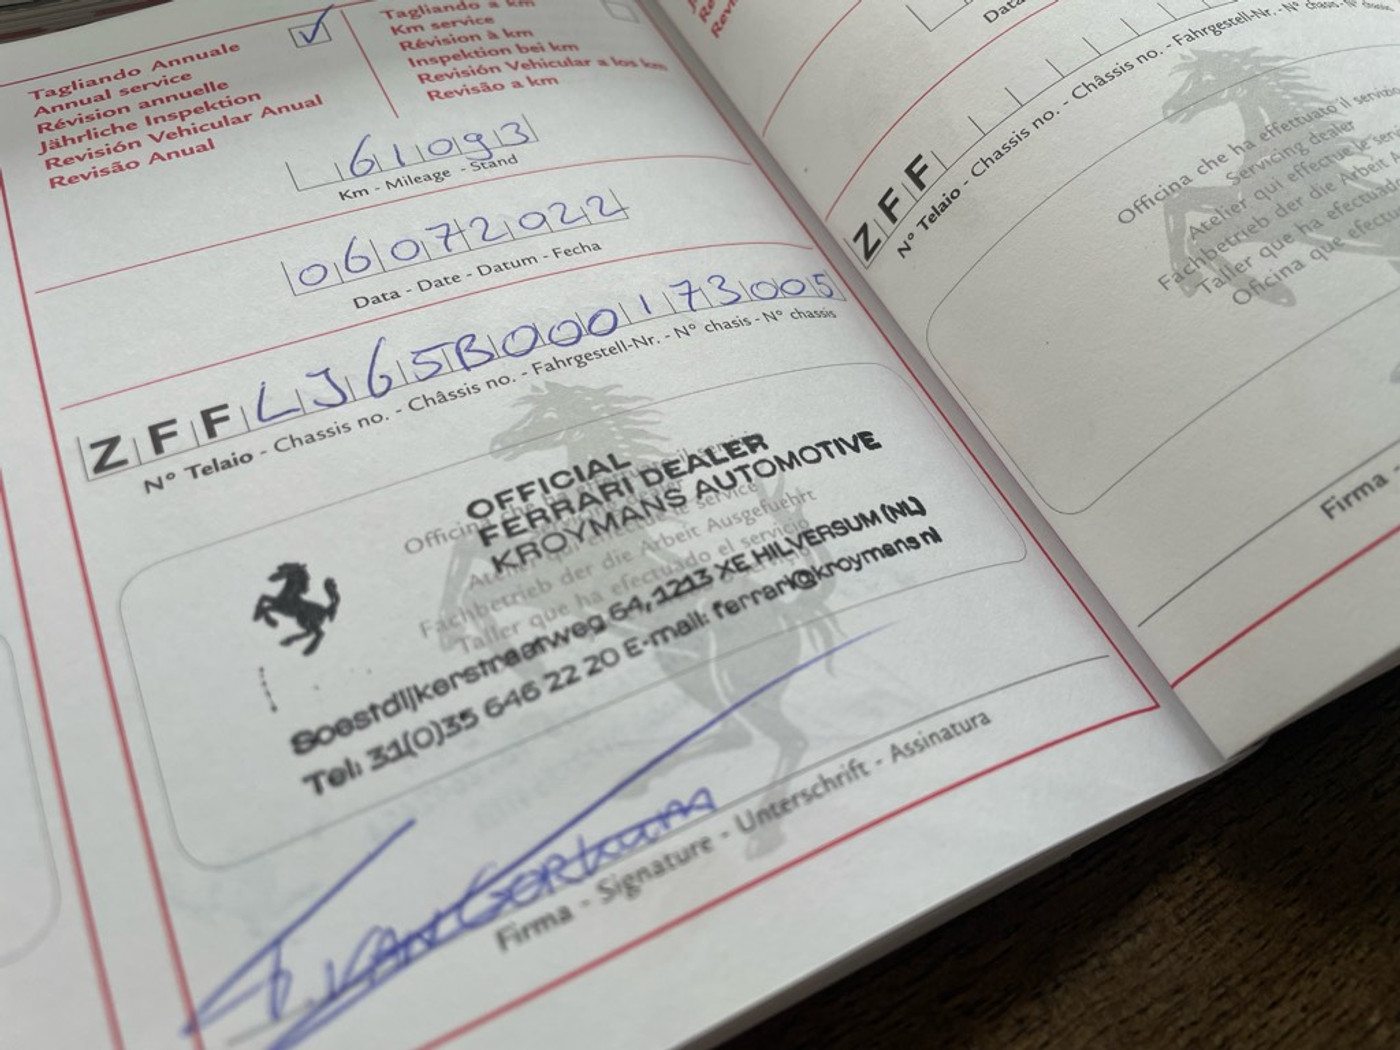 Tagliando Annuale
Annual service
Révision annuelle
Jährliche Inspektion
Revisión Vehicular Anual
Revisão Anual
Tagliando a km
Km service
Révision à km
Inspektion bei km
Revisión Vehicular a los km
Revisão a km
61093
Km - Mileage - Stand
06072022
Data - Date - Datum - Fecha
ZFFLJ65B000173005
N° Telaio - Chassis no. - Châssis no. - Fahrgestell-Nr. - N° chasis - N° chassis
OFFICIAL
FERRARI DEALER
KROYMANS AUTOMOTIVE
Soestdijkerstraatweg 64, 1213 XE HILVERSUM (NL)
Tel: 31(0)35 646 22 20 E-mail: ferrari@kroymans.nl
Officina che ha
Fachbetrieb der die Arbeit Ausgefuehrt
Taller que ha efectuado el servicio
T VAN GORKUM
Firma - Signature - Unterschrift - Assinatura
Data
ZFF
N° Telaio - Chassis no. - Châssis no. - Fahrgestell-Nr. - N° chasis - N° chassis
Officina che ha effettuato il servizio
Servicing dealer
Atelier qui effectue le
Fachbetrieb der die Arbeit
Taller que ha
Oficina que
Firma -